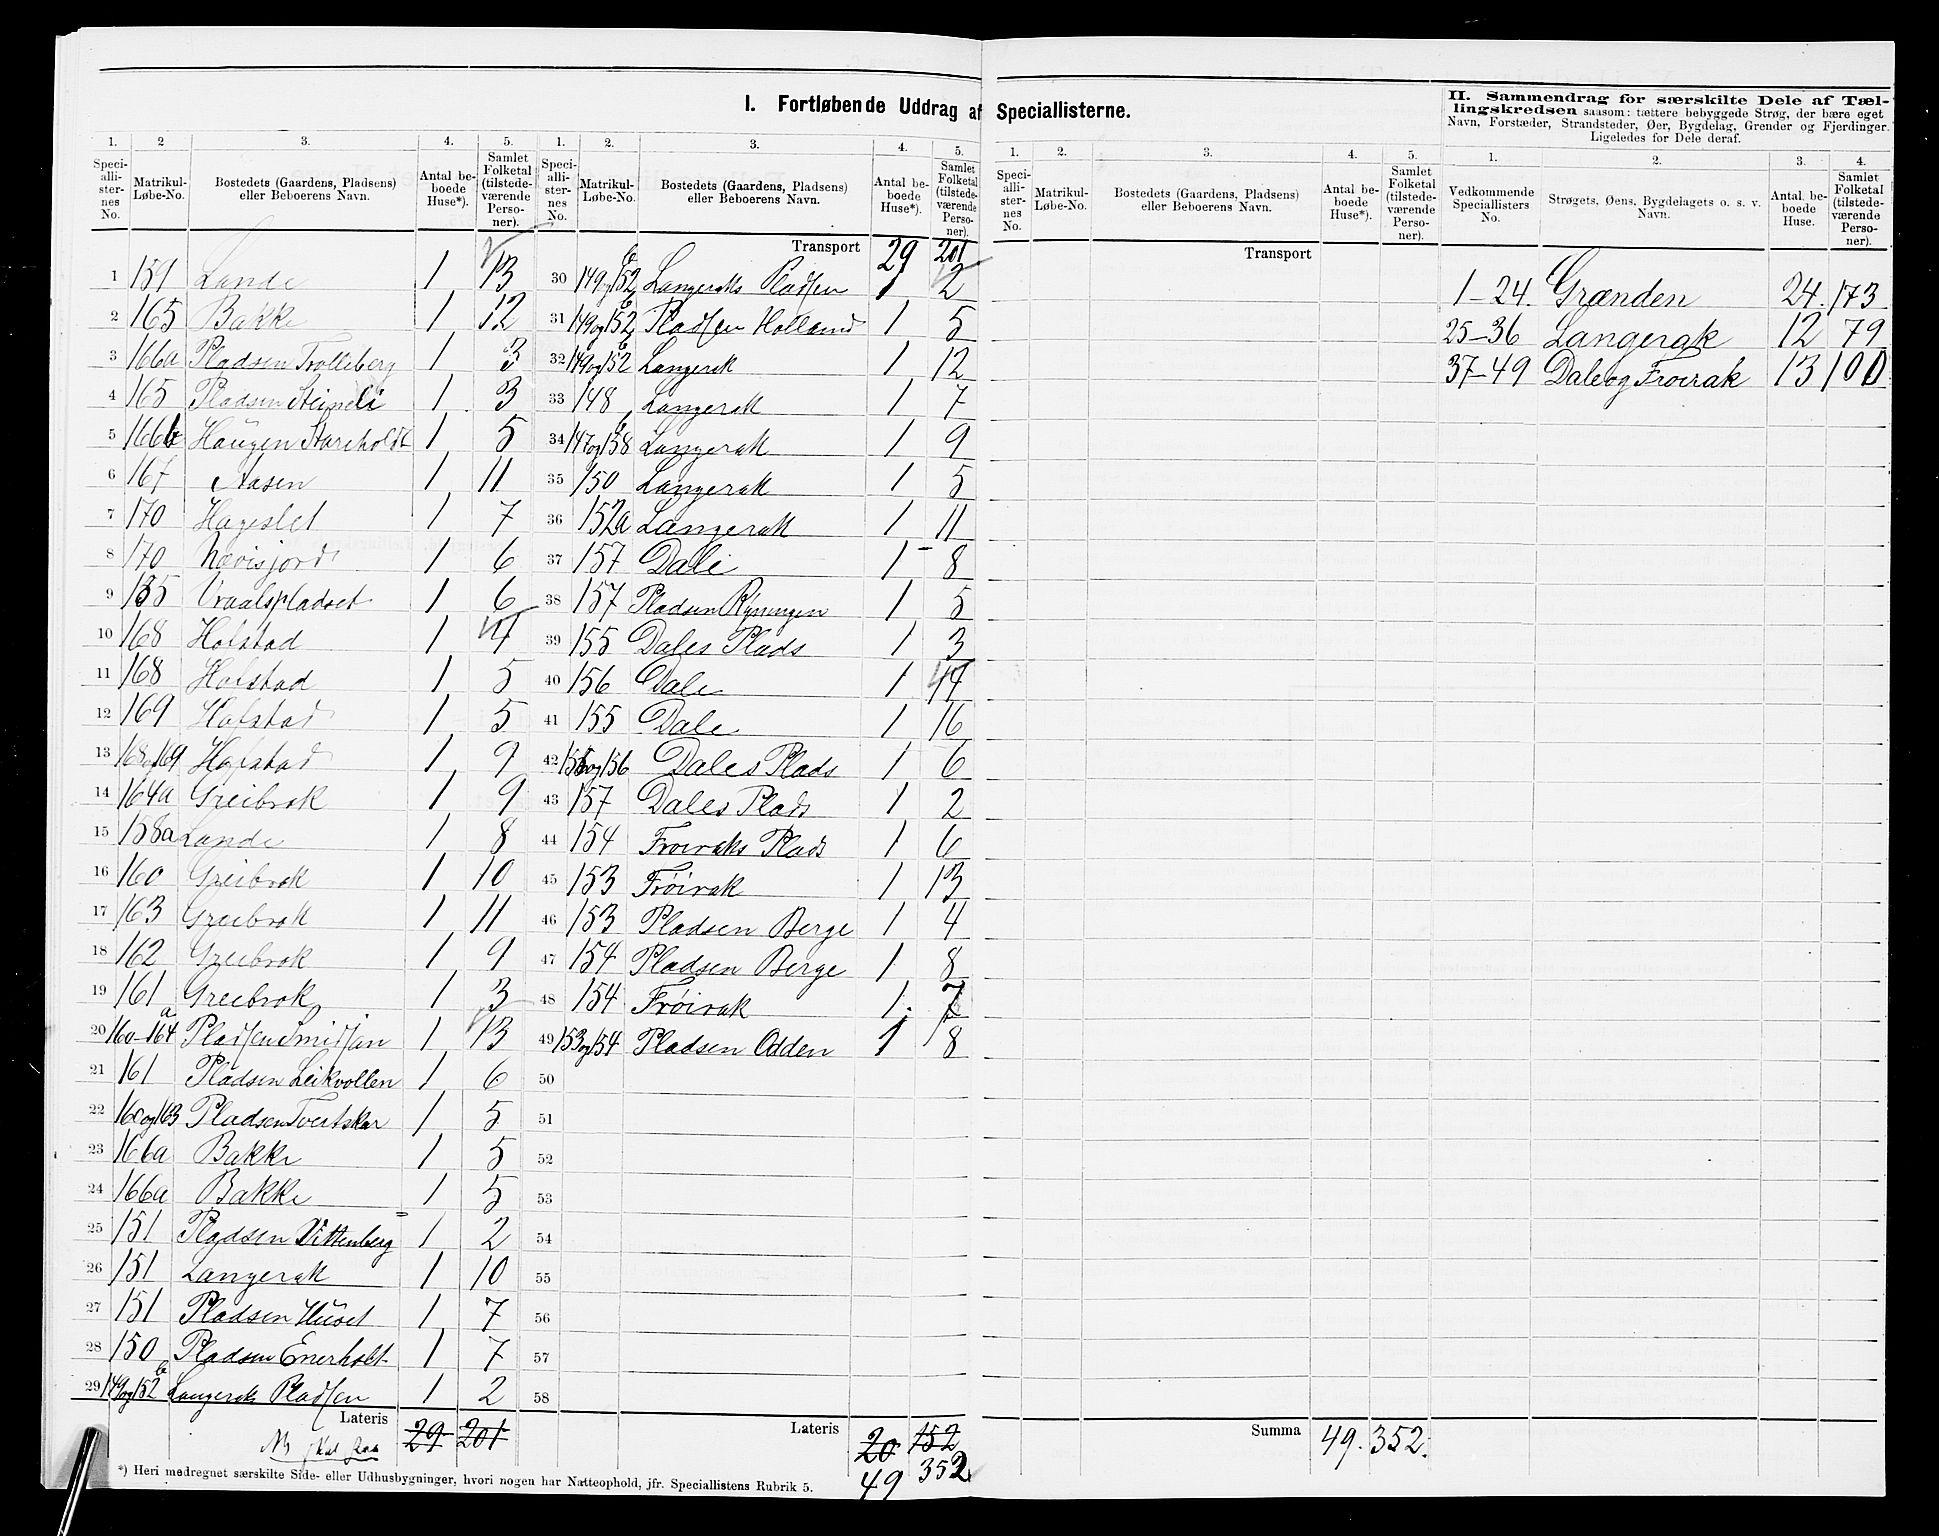 I. Fortløbende Uddrag af Speciallisterne.
II. Sammendrag for særskilte Dele af Tæl-
lingskredsen saasom: tættere bebyggede Strøg, der bære eget
Navn, Forstæder, Strandsteder, Øer, Bygdelag, Grender og Fjerdinger.
Ligeledes for Dele deraf.
1. 2 3. 4. 5. 1. 2. 3. 4. 5. 1. 2. 3. 4. 5. 1. 2. 3. 4.
Speciallisternes No. Matrikul-Løbe-No. Bostedets (Gaardens, Pladsens) eller Beboerens Navn. Antal beboede Huse*). Samlet Folketal (tilstedeværende Personer).
Speciallisternes No. Matrikul-Løbe-No. Bostedets (Gaardens, Pladsens) eller Beboerens Navn. Antal beboede Huse*). Samlet Folketal (tilstedeværende Personer).
Speciallisternes No. Matrikul-Løbe-No. Bostedets (Gaardens, Pladsens) eller Beboerens Navn. Antal beboede Huse*). Samlet Folketal (tilstedeværende Personer).
Vedkommende Speciallisters No. Strøgets, Øens, Bygdelagets o. s. v. Navn. Antal beboede Huse. Samlet Folketal (tilstedeværende Personer).
1 159 Lande 1 13
2 165 Bakke 1 12
3 166a Pladsen Trolleberg 1 3
4 165 Pladsen Steineli 1 3
5 166b Haugen Stareholdt 1 5
6 167 Aasen 1 11
7 170 Hageslet 1 7
8 170 Nævisjord 1 6
9 135 Vraalspladset 1 6
10 168 Hofstad 1
11 168 Hofstad 1 5
12 169 Hofstad 1 5
13 168og169 Hofstad 1 9
14 164a Greibrok 1 9
15 158a Lande 1 8
16 160 Greibrok 1 10
17 163 Greibrok 1 11
18 162 Greibrok 1 9
19 161 Greibrok 1 3
20 160-164a Pladsen Smidjan 1 13
21 161 Pladsen Leikvollen 1 6
22 160og163 Pladsen Tvertskar 1 5
23 166a Bakke 1 5
24 166a Bakke 1 5
25 151 Pladsen Vittenberg 1 2
26 151 Langerak 1 10
27 151 Pladsen Huset 1 7
28 150 Pladsen Enerholt 1 7
29 149og152b Langeraks Pladsen 1 2
Lateris 29 201
Transport 29 201
30 149og152b Langeraks Pladsen 1 2
31 149og152b Pladsen Holland 1 5
32 149og152b Langerak 1 12
33 148 Langerak 1 7
34 147og158 Langerak 1 9
35 150 Langerak 1 5
36 152a Langerak 1 11
37 157 Dale 1 8
38 157 Pladsen Ryningen 1 5
39 155 Dales Plads 1 3
40 156 Dale 1
41 155 Dale 1 16
42 155og156 Dales Plads 1 6
43 157 Dales Plads 1 2
44 154 Froiraks Plads 1 6
45 153 Frøirak 1 13
46 153 Pladsen Berge 1 4
47 154 Pladsen Berge 1 8
48 154 Frøirak 1. 7
49 153og154 Pladsen Odden 1 8
50
51
52
53
54
55
56
57
58
Lateris 20 152
49 352
*) Heri medregnet særskilte Side- eller Udhusbygninger, hvori nogen har Natteophold, jfr. Speciallistens Rubrik 5.
Transport
Summa 49. 352.
1-24. Grænden 24. 173
25-36 Langerak 12 79
37-49 Dale og Froirak 13 100